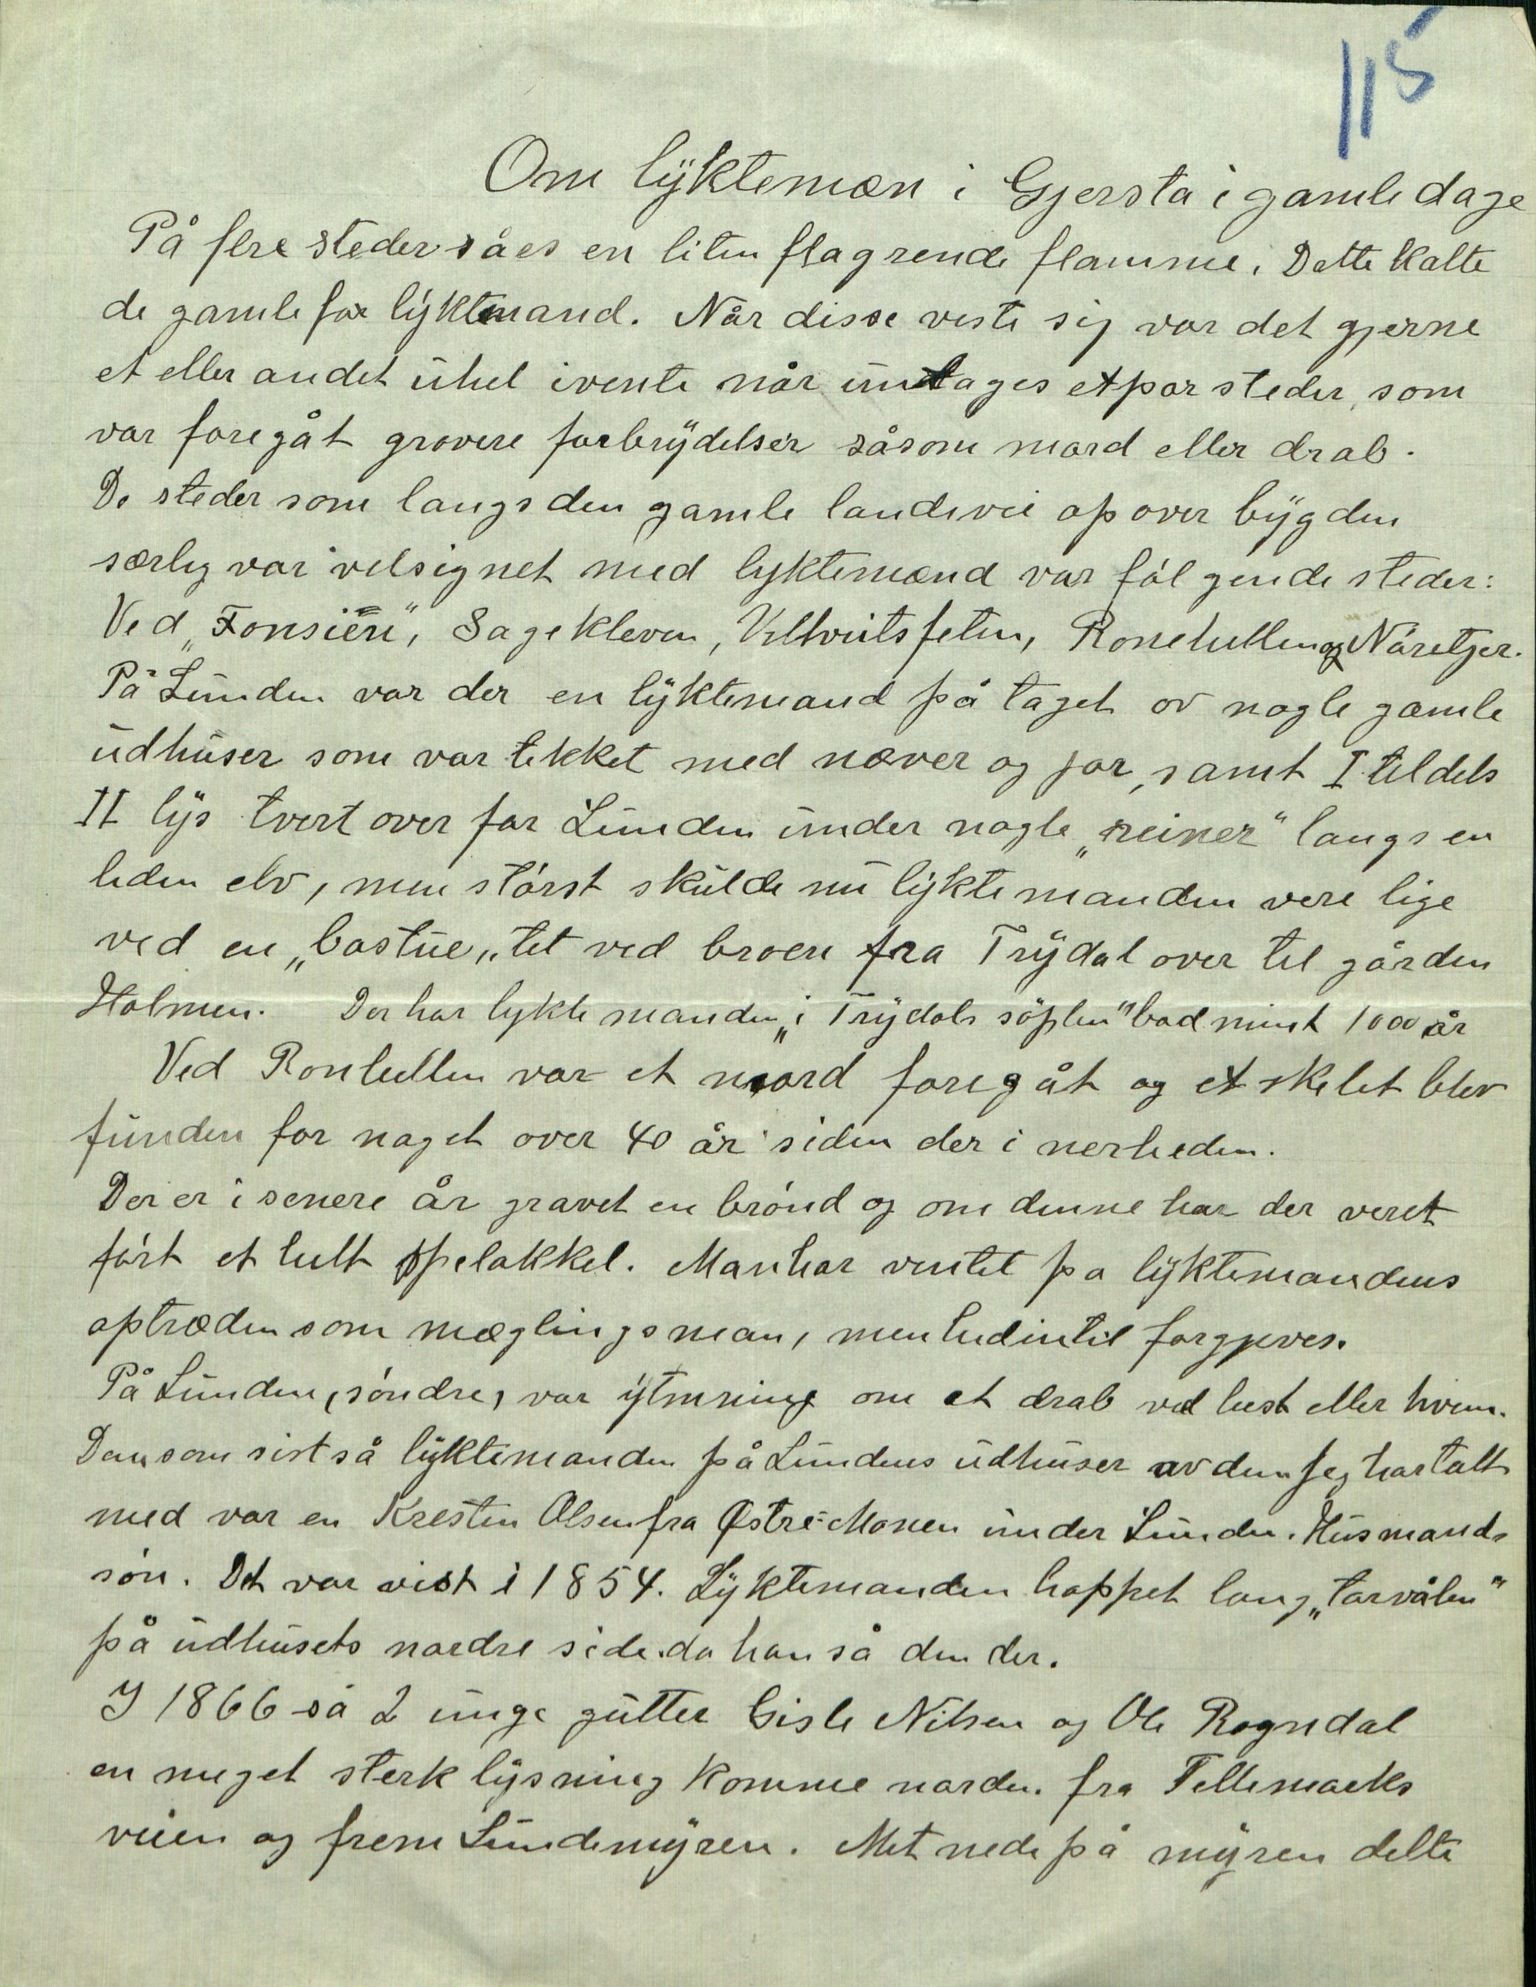 115
Om lyktemæn i Gjersta i gamle dage
På flre steder såes en liten flagrende flamme. Dette kalte
de gamle for lyktemand. Når disse viste sig var det gjerne
et eller andet uhel ivente når undtages et par steder, som
var foregåt grovere forbrydelser såsom mord eller drab.
De steder som langs den gamle landevei opover bygden
særlig var velsignet med lyktemænd var følgende steder:
Ved „Fonsien", Sagekleven, Ronehellen og Nåretjer.
På Lunden var der en lyktemand på taget ov nogle gamle
udhuser som var tekket med næver og jor, samt I tildels
II lys tvert over for Lunden under nogle „reiner" langs en
liden elv, men størst skulde nu lyktemanden vere lige
ved en „bastue„ tet ved broen fra Trydal over til gården
Holmen. Der har lyktemanden „i Trydals søplen" bod minst 1000 år
Ved Ronhellen var et mord foregåt og et skelet blev
funden for noget over 40 år siden der i nerheden.
Der er i senere år gravet en brønd og om denne har der veret
ført et helt spelakkel. Man har ventet pa lyktemandens
optræden som mæglingsman, men hedintil forgjeves.
På Lunden, søndre, var ytmning om et drab ved hest eller hvem.
Den som sist så lyktemanden på Lundens udhuser av dem jeg har talt
med var en Kresten Olsen fra Østre-Monen under Lunden. Husmands
søn. Det var vist i 1854. Lyktemanden hoppet lang „torvålen"
på udhusets nordre side da han så den der.
I 1866 så 2 unge gutter Gisle Nilsen og Ole Rogndal
en meget sterk lysning komme norden fra Tellemarks
veien og frem Lundemyren. Met nede på myren delte